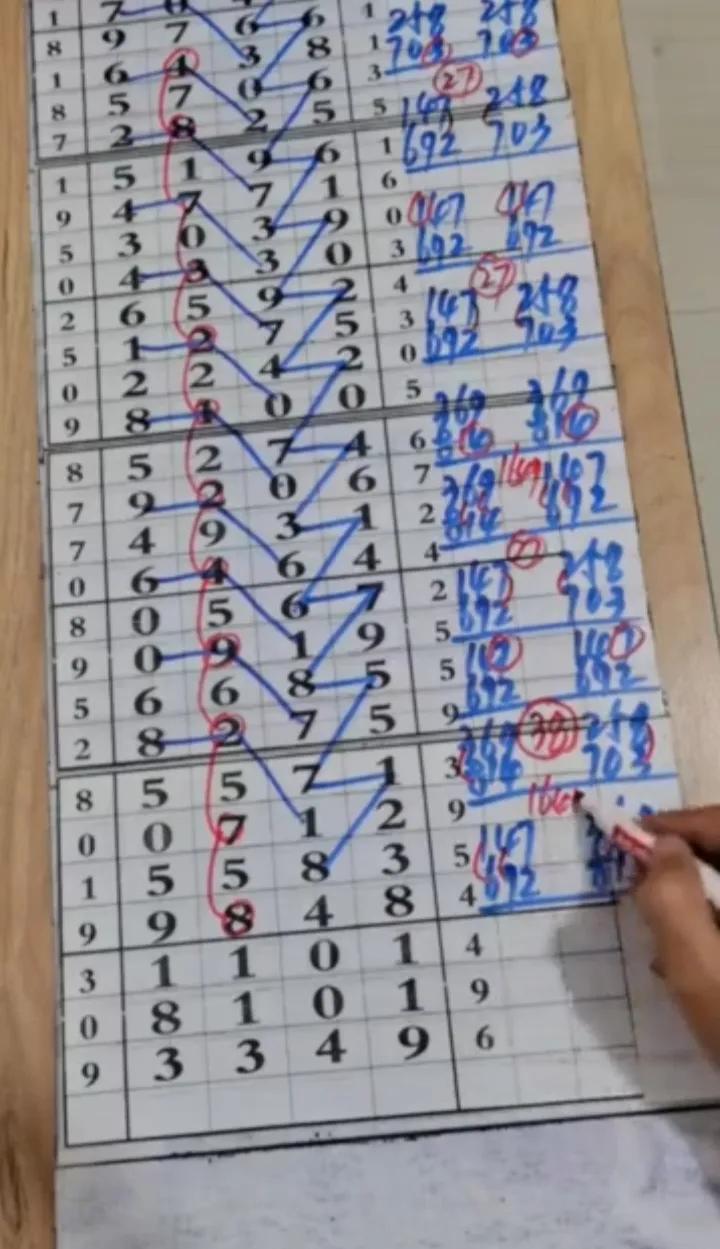 1 7 0 6 6 1 248 248
8 9 7 3 8 1 703 703
1 6 4 0 6 3 27
8 5 7 2 5 5 147 248
7 2 8 9 6 1 692 703
1 5 1 7 1 6
9 4 7 3 9 0 147 147
5 3 0 3 0 3 692 692
0 4 3 9 2 4 27
2 6 5 7 5 3 147 248
5 1 2 4 2 0 692 703
0 2 2 0 0 5
9 8 1 7 4 6 369 369
8 5 2 0 6 7 1691
7 9 2 3 1 2 369 147
7 4 9 6 4 4 692
0 6 4 6 7 2 147 248
8 0 5 1 9 5 692 703
9 0 9 8 5 5 147 147
5 6 6 7 5 9 692 692
2 8 2 7 1 3 369 38 248
8 5 5 1 2 9 703
0 0 7 8 3 5 147
1 5 5 4 8 4 692
9 9 8 0 1 4
3 1 1 0 1 9
0 8 1 4 9 6
9 3 3